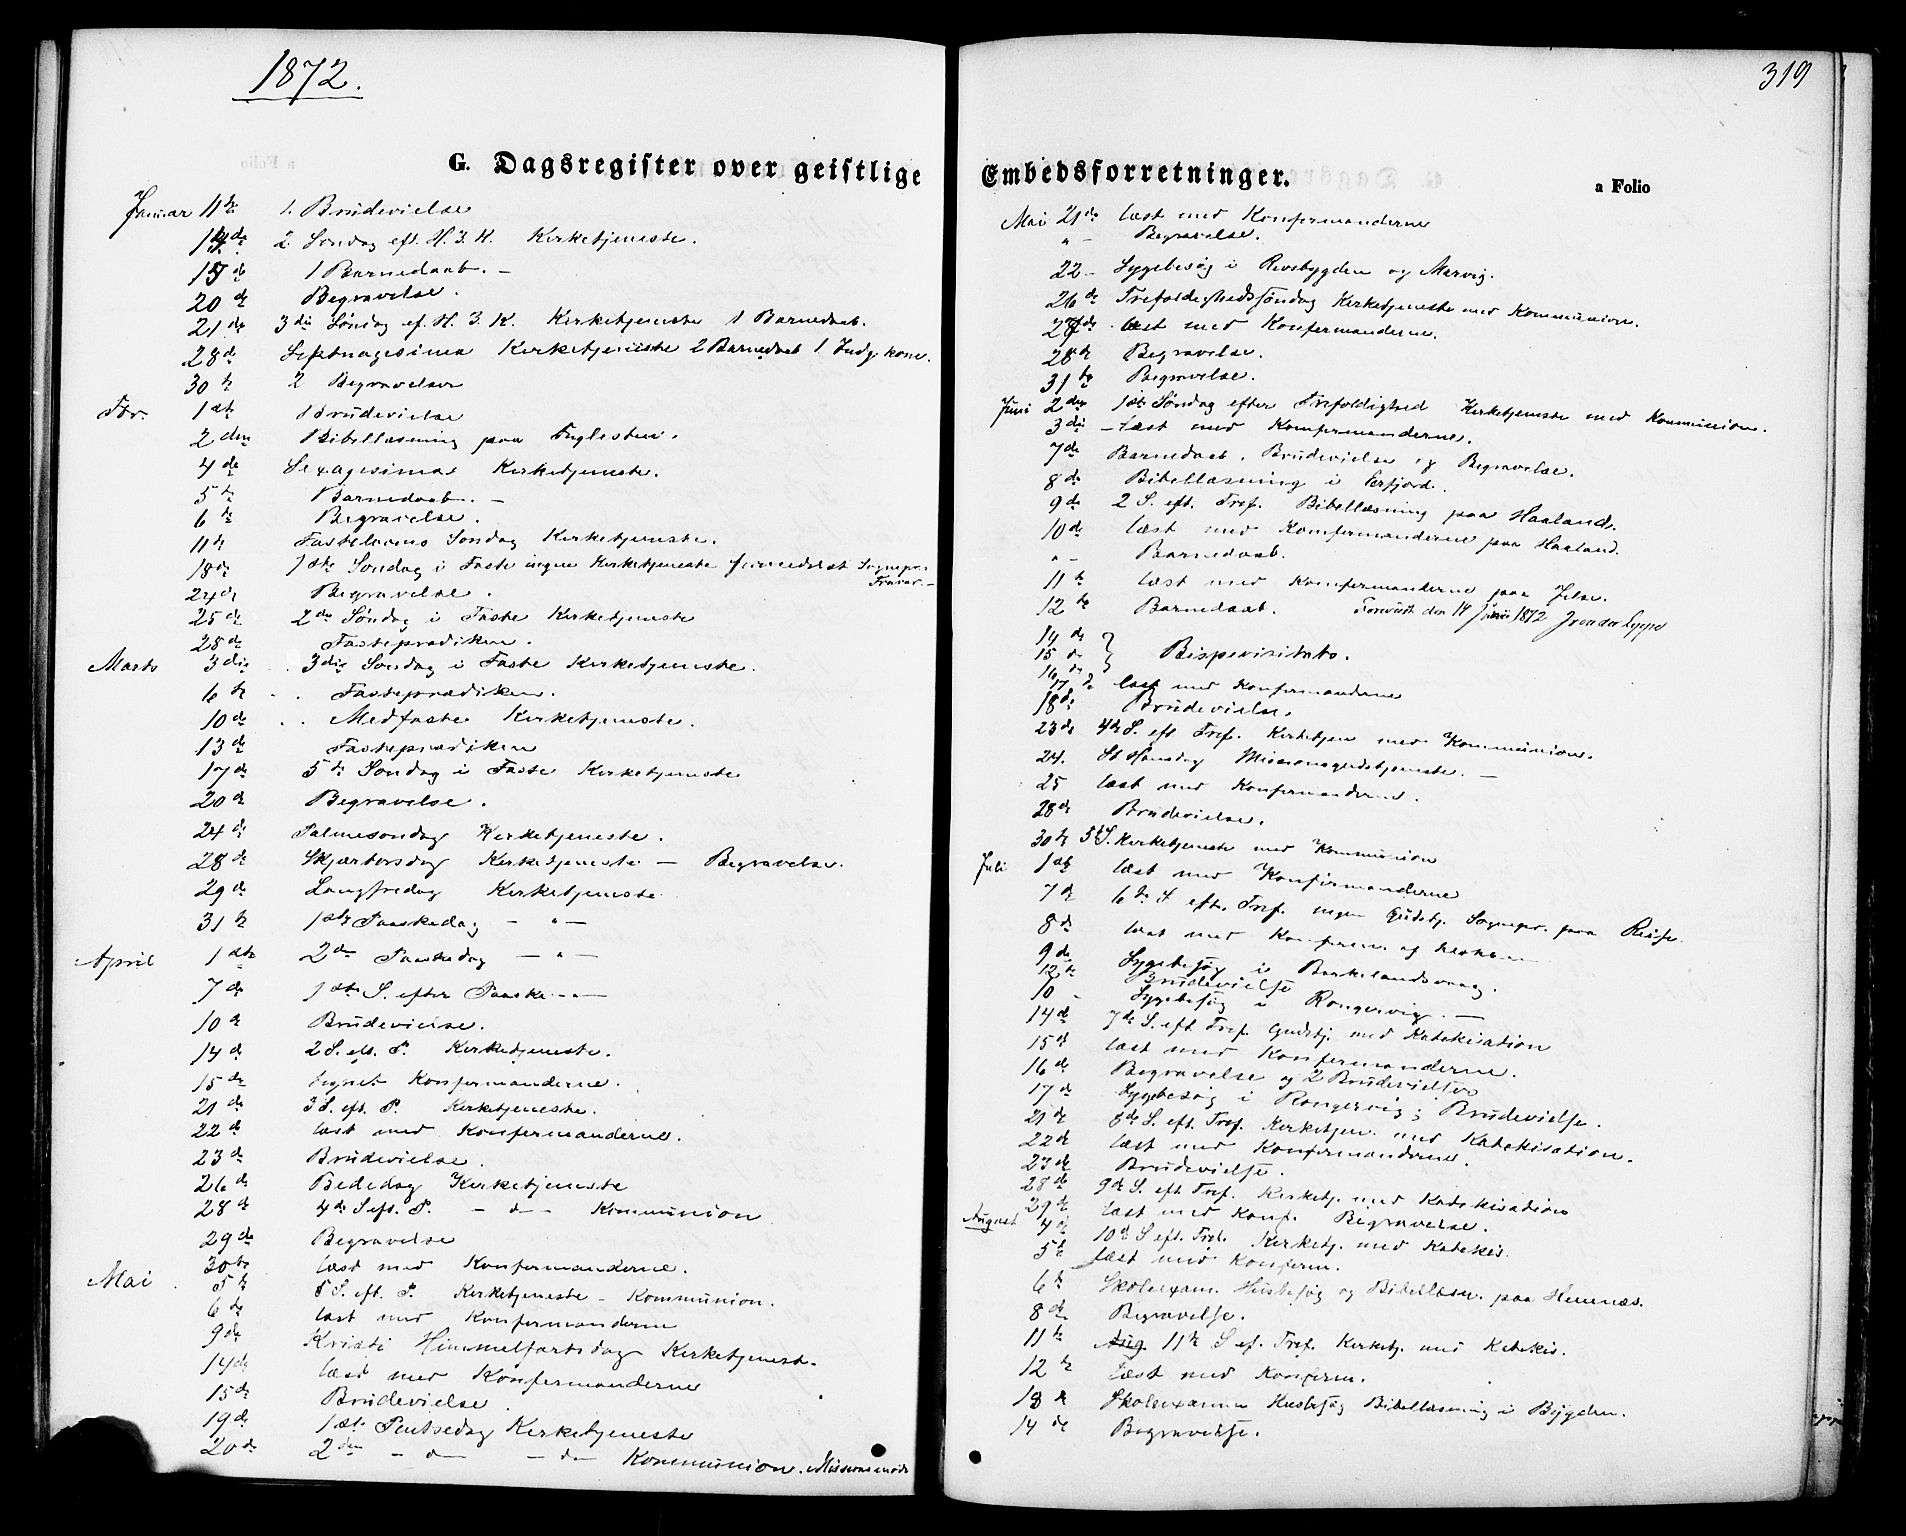 1872.
G. Dagsregister over geistlige
Januar 11te 1. Brudevielse
14de 2 Søndag eft. H. 3. K. Kirketjeneste.
15de 1 Barnedaab. –
20de Begravelse.
21de 3die Søndag ef. H. 3. K. Kirketjeneste 1 Barnedaab.
28de Septuagesima Kirketjeneste 2 Barnedaab 1 Indg. kone.
30te 2 Begravelser
Febr. 1ste 1 Brudevielse
2den Bibellæsning paa Fuglesteen.
4de Sexagesima Kirketjeneste.
5te 1 Barnedaab. –
6te Begravelse.
11te Fastelavns Søndag Kirketjeneste.
18de 1ste Søndag i Faste ingen Kirketjeneste formedelst Sognepr.
Fravær. –
24de Begravelse.
25de 2den Søndag i Faste Kirketjeneste
28de Fasteprædiken.
Marts 3die 3die Søndag i Faste Kirketjeneste.
6te Fasteprædiken.
10de Medfaste Kirketjeneste.
13de Fasteprædiken
17de 5te Søndag i Faste Kirketjeneste
20de Begravelse.
24de Palmesøndag Kirketjeneste.
28de Skjærtorsdag Kirketjeneste – Begravelse.
29de Langfredag Kirketjeneste
31te 1ste Paaskedag – " –
April 1ste 2den Paaskedag – " –
7de 1ste S. efter Paaske – " –
10de Brudevielse.
14de 2 S. eft. P. Kirketjeneste.
15de tegnet Konfirmanderne.
21de 3 S. eft. P. Kirketjeneste.
22de læst med Konfirmanderne.
23de Brudevielse.
26de Bededag Kirketjeneste
28de 4de S. eft. P. – d – Kommunion
29de Begravelse
30te læst med Konfirmanderne.
Mai 5te 5 S. eft. P. Kirketjeneste – Kommunion.
6te læst med Konfirmanderne
9de Kristi Himmelfartsdag Kirketjenest.
14de læst med Konfirmanderne
15de Brudevielse.
19de 1ste Pintsedag Kirketjeneste
20de 2den – d – – d – Kommunion. Missionsmøde
319
Embedsforretninger.
a Folio
Mai 21de læst med Konfirmanderne
" – Begravelse.
22 – Sygebesøg i Revsbygden og Marvig.
26de Trefoldighedssøndag Kirketjeneste med Kommunion.
27de læst med Konfirmanderne.
28de Begravelse.
31te Begravelse.
Juni 2den 1ste Søndag efter Trefoldighed Kirketjeneste med Kommunion.
3die – læst med Konfirmanderne.
7de Barnedaab. Brudevielse og Begravelse.
8de Bibellæsning i Erfjord.
9de 2 S. eft. Tref. Bibellæsning paa Haaland.
10de læst med Konfirmanderne paa Haaland.
" – Barnedaab.
11te læst med Konfirmanderne paa Jelse.
12te Barnedaab. Foreviist den 14 Juni 1872 J von der Lippe
14de
15de Bispevisitats.
16de
17de læst med Konfirmanderne
18de Brudevielse.
23de 4de S. eft Tref. Kirketjen med Kommunion.
24. St Hansdag Missionsgudstjeneste. –
25 læst med Konfirmanderne.
28de Brudevielse.
30te 5te S. Kirketjeneste med Kommunion
Juli 1ste læst med Konfirmanderne
7de 6te S. eft. Tref. ingen Gudstj. Sognepr. paa Reise.
8de læst med Konfirm. og
9de Sygebesøg i Barkelandsvaag.
12te Brudevielse
10 – Sygebesøg i Rongervig. –
14de 7de S. eft Tref. Gudstj. med Katekisation
15de læst med Konfirmanderne.
16de Begravelse og 2 Brudevielser
17de Sygebesøg i Rongervig; Brudevielse.
21de 8de S. eft. Tref. Kirketjen. med Katekisation.
22de læst med Konfirmanderne.
23de Brudevielse.
28de 9de S. eft Tref. Kirketj. med Katekisation
29de læst med Konf. Begravelse.
August 4de 10de S eft. Tref. Kirketj. med Katekis.
5te læst med Konfirm.
6te Skolexam. Husbesøg og Bibellæsn. paa Hennæs.
8de Begravelse.
11te Aug 11te S ef. Tref. Kirketj. med Katekis.
12te læst med Konfirm.
13de Skolexamen Husbesøg Bibellæsning i Bygden.
14de Begravelse.